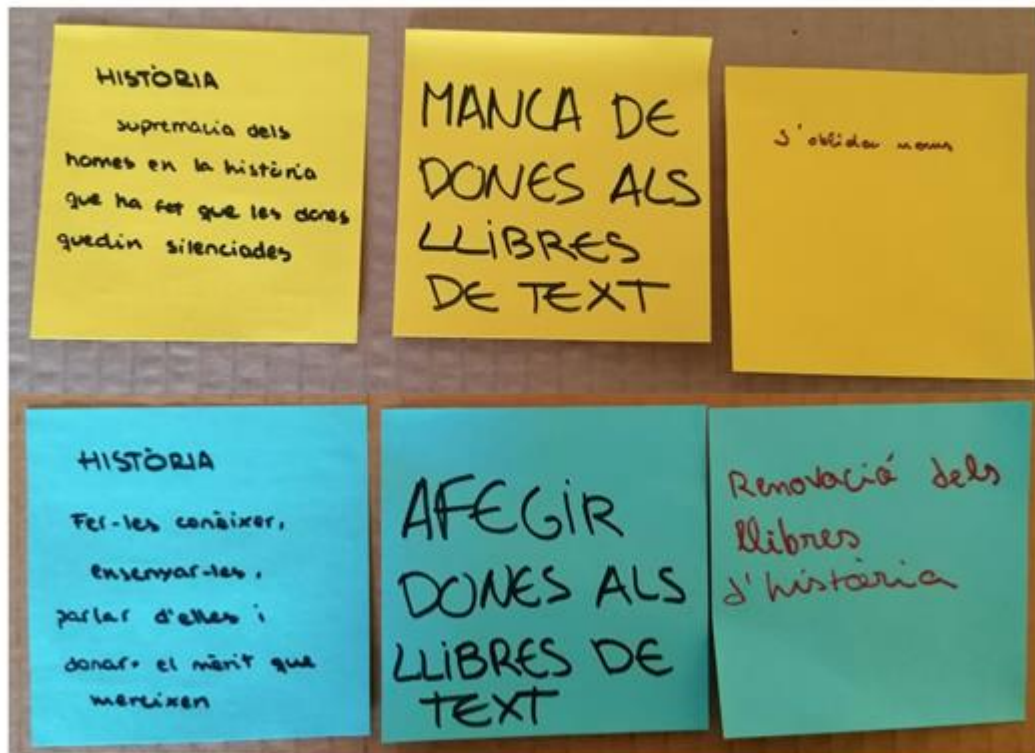 HISTÒRIA
supremacia dels
homes en la història
que ha fet que les dones
quedin silenciades
MANCA DE
DONES ALS
LLIBRES
DE TEXT
S'obliden noms
HISTÒRIA
Fer-les conèixer,
ensenyar-les,
parlar d'elles i
donar- el mèrit que
mereixen
AFEGIR
DONES ALS
LLIBRES DE
TEXT
Renovació dels
llibres
d'història